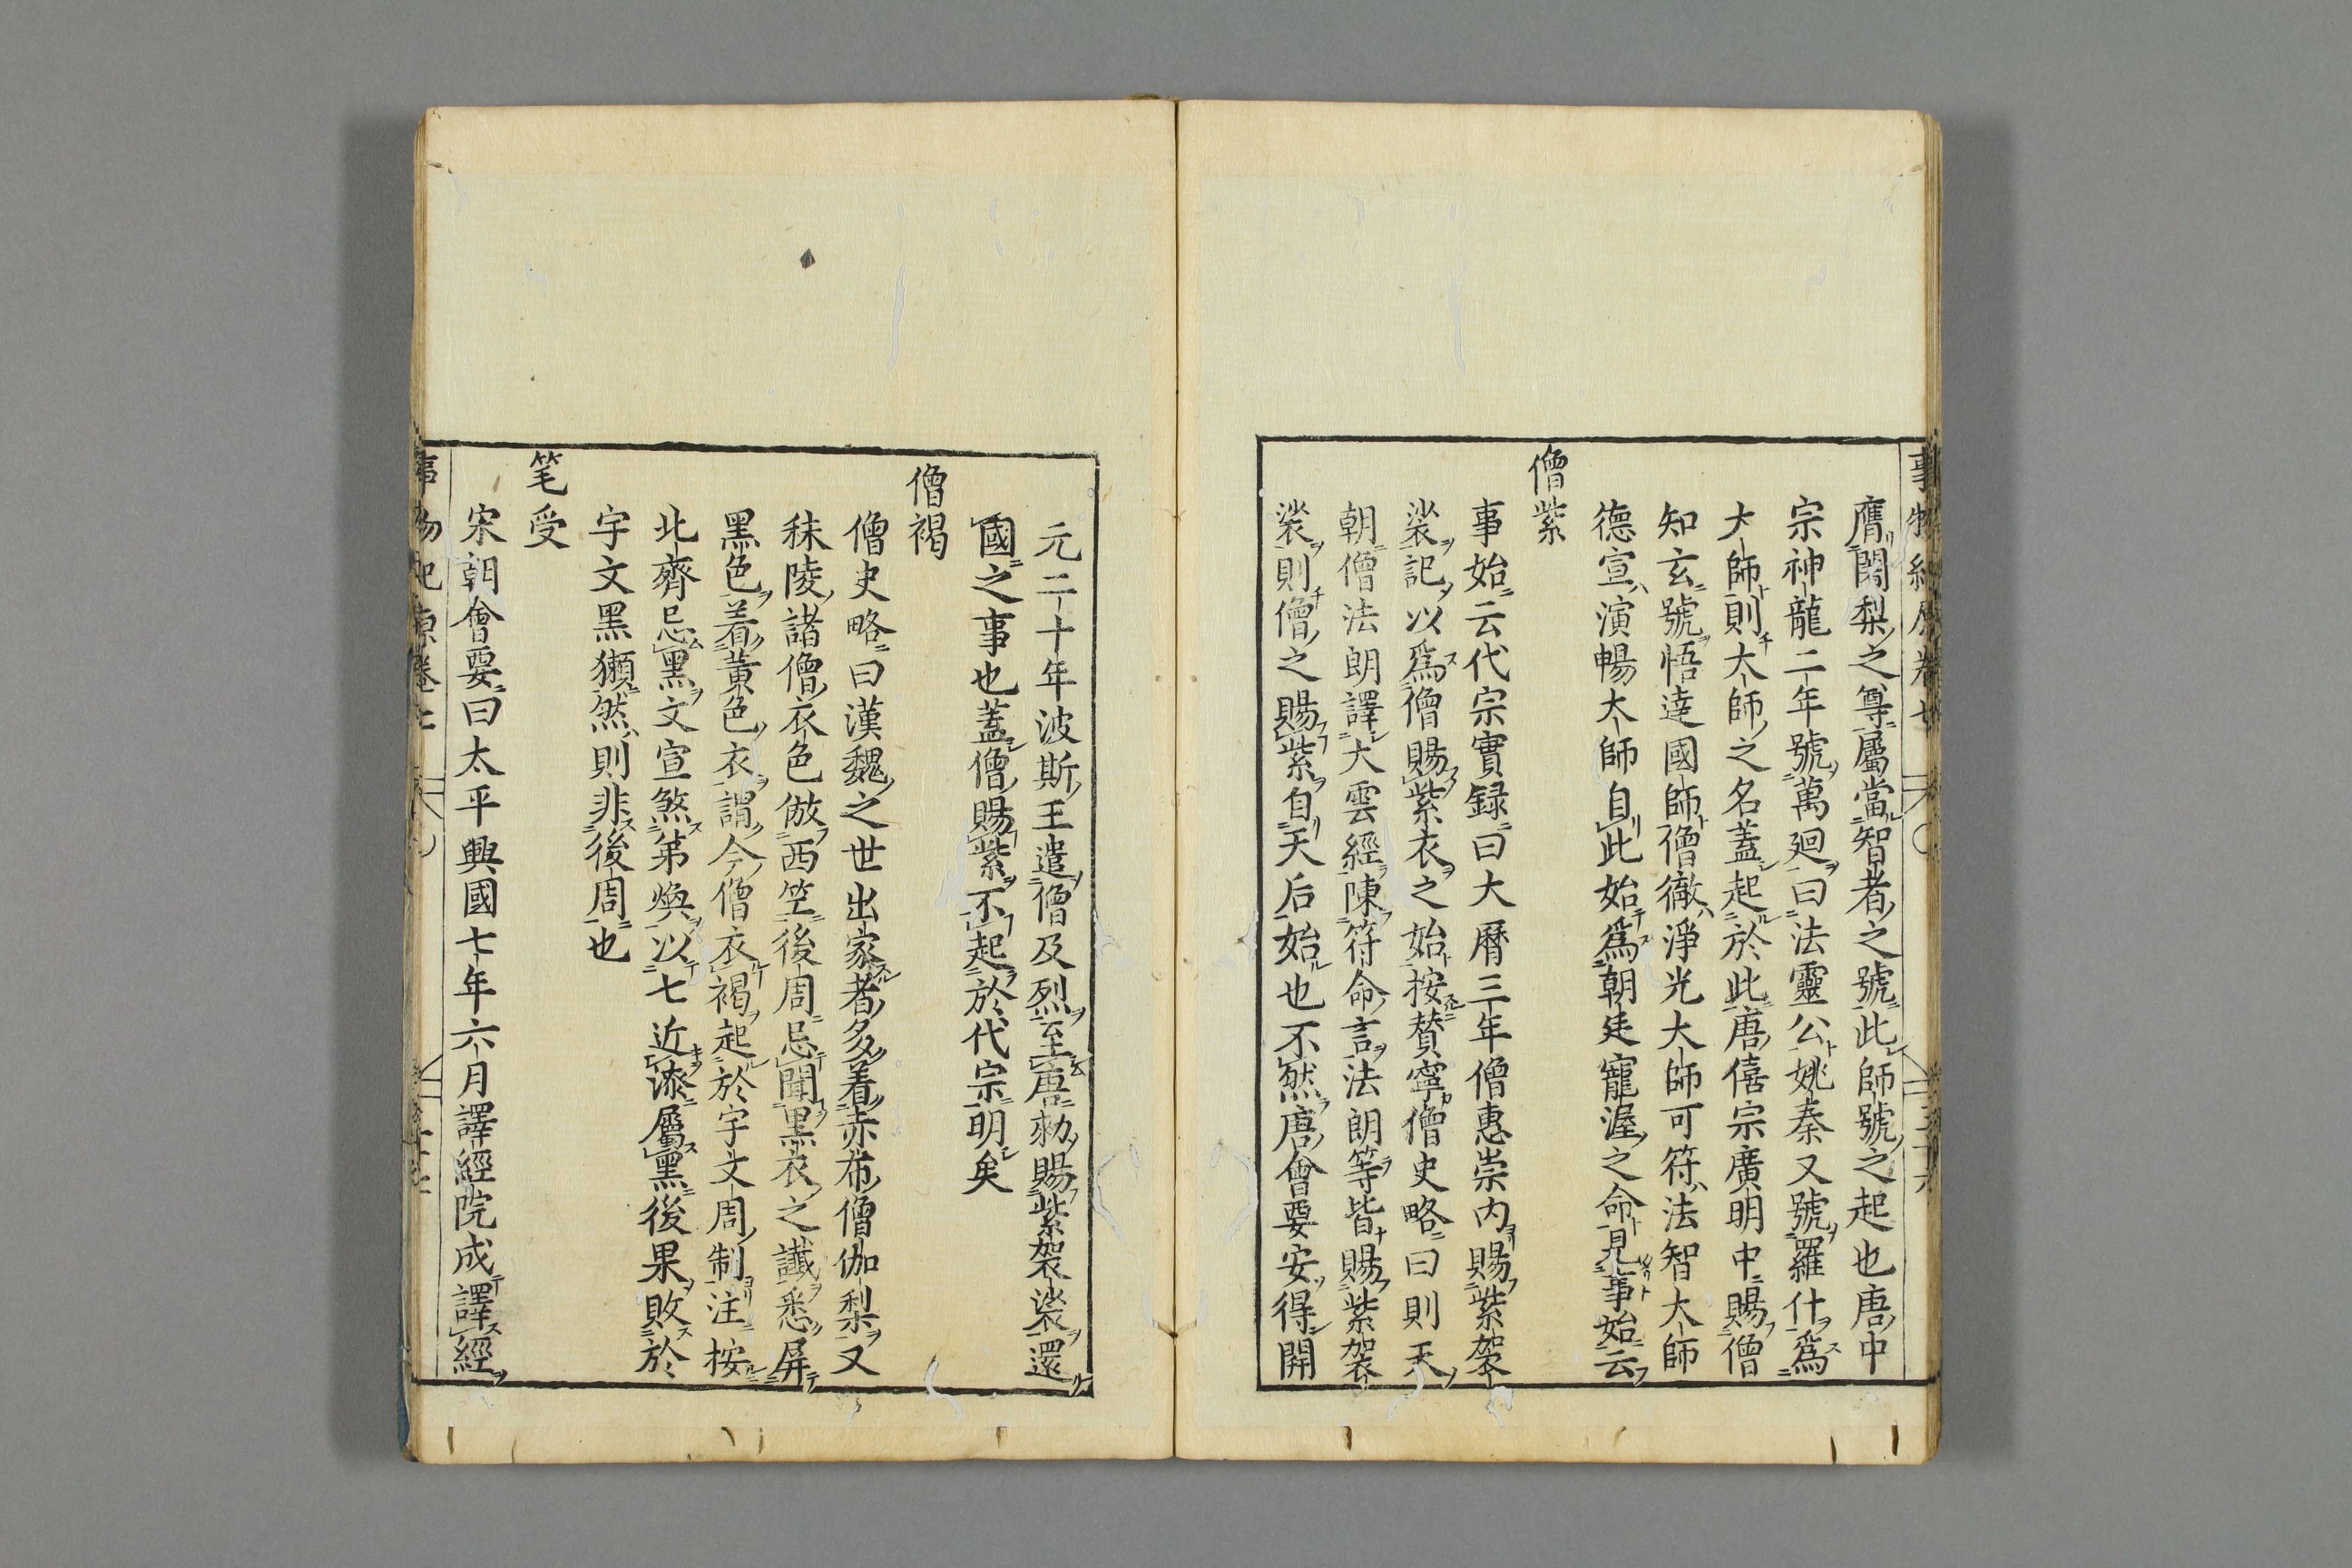 膺闍梨之尊屬當智者之號此師號之起也唐中
宗神龍二年號萬廻曰法靈公姚秦又號羅什爲
大師則大師之名蓋起於此唐僖宗廣明中賜僧
知玄號悟達國師僧徹淨光大師可符法智大師
德宣演暢大師自此始爲朝廷寵渥之命見事始云
僧紫
事始云代宗實録曰大曆三年僧惠崇内賜紫袈
裟記以爲僧賜紫衣之始按賛寧僧史略曰則天
朝僧法朗譯大雲經陳符命言法朗等皆賜紫袈
裟則僧之賜紫自天后始也不然唐會要安得開
元二十年波斯王遣僧及烈至唐勑賜紫袈裟還
國之事也蓋僧賜紫不起於代宗明矣
僧褐
僧史略曰漢魏之世出家者多着赤布僧伽梨又
秣陵諸僧衣色倣西竺後周忌聞黑衣之讖悉屏
黑色着黄色衣謂今僧衣褐起於宇文周制注按
北齊忌黑文宣煞弟煥以七近漆屬黑後果敗於
宇文黑獺然則非後周也
笔受
宋朝會要曰太平興國七年六月譯經院成譯經